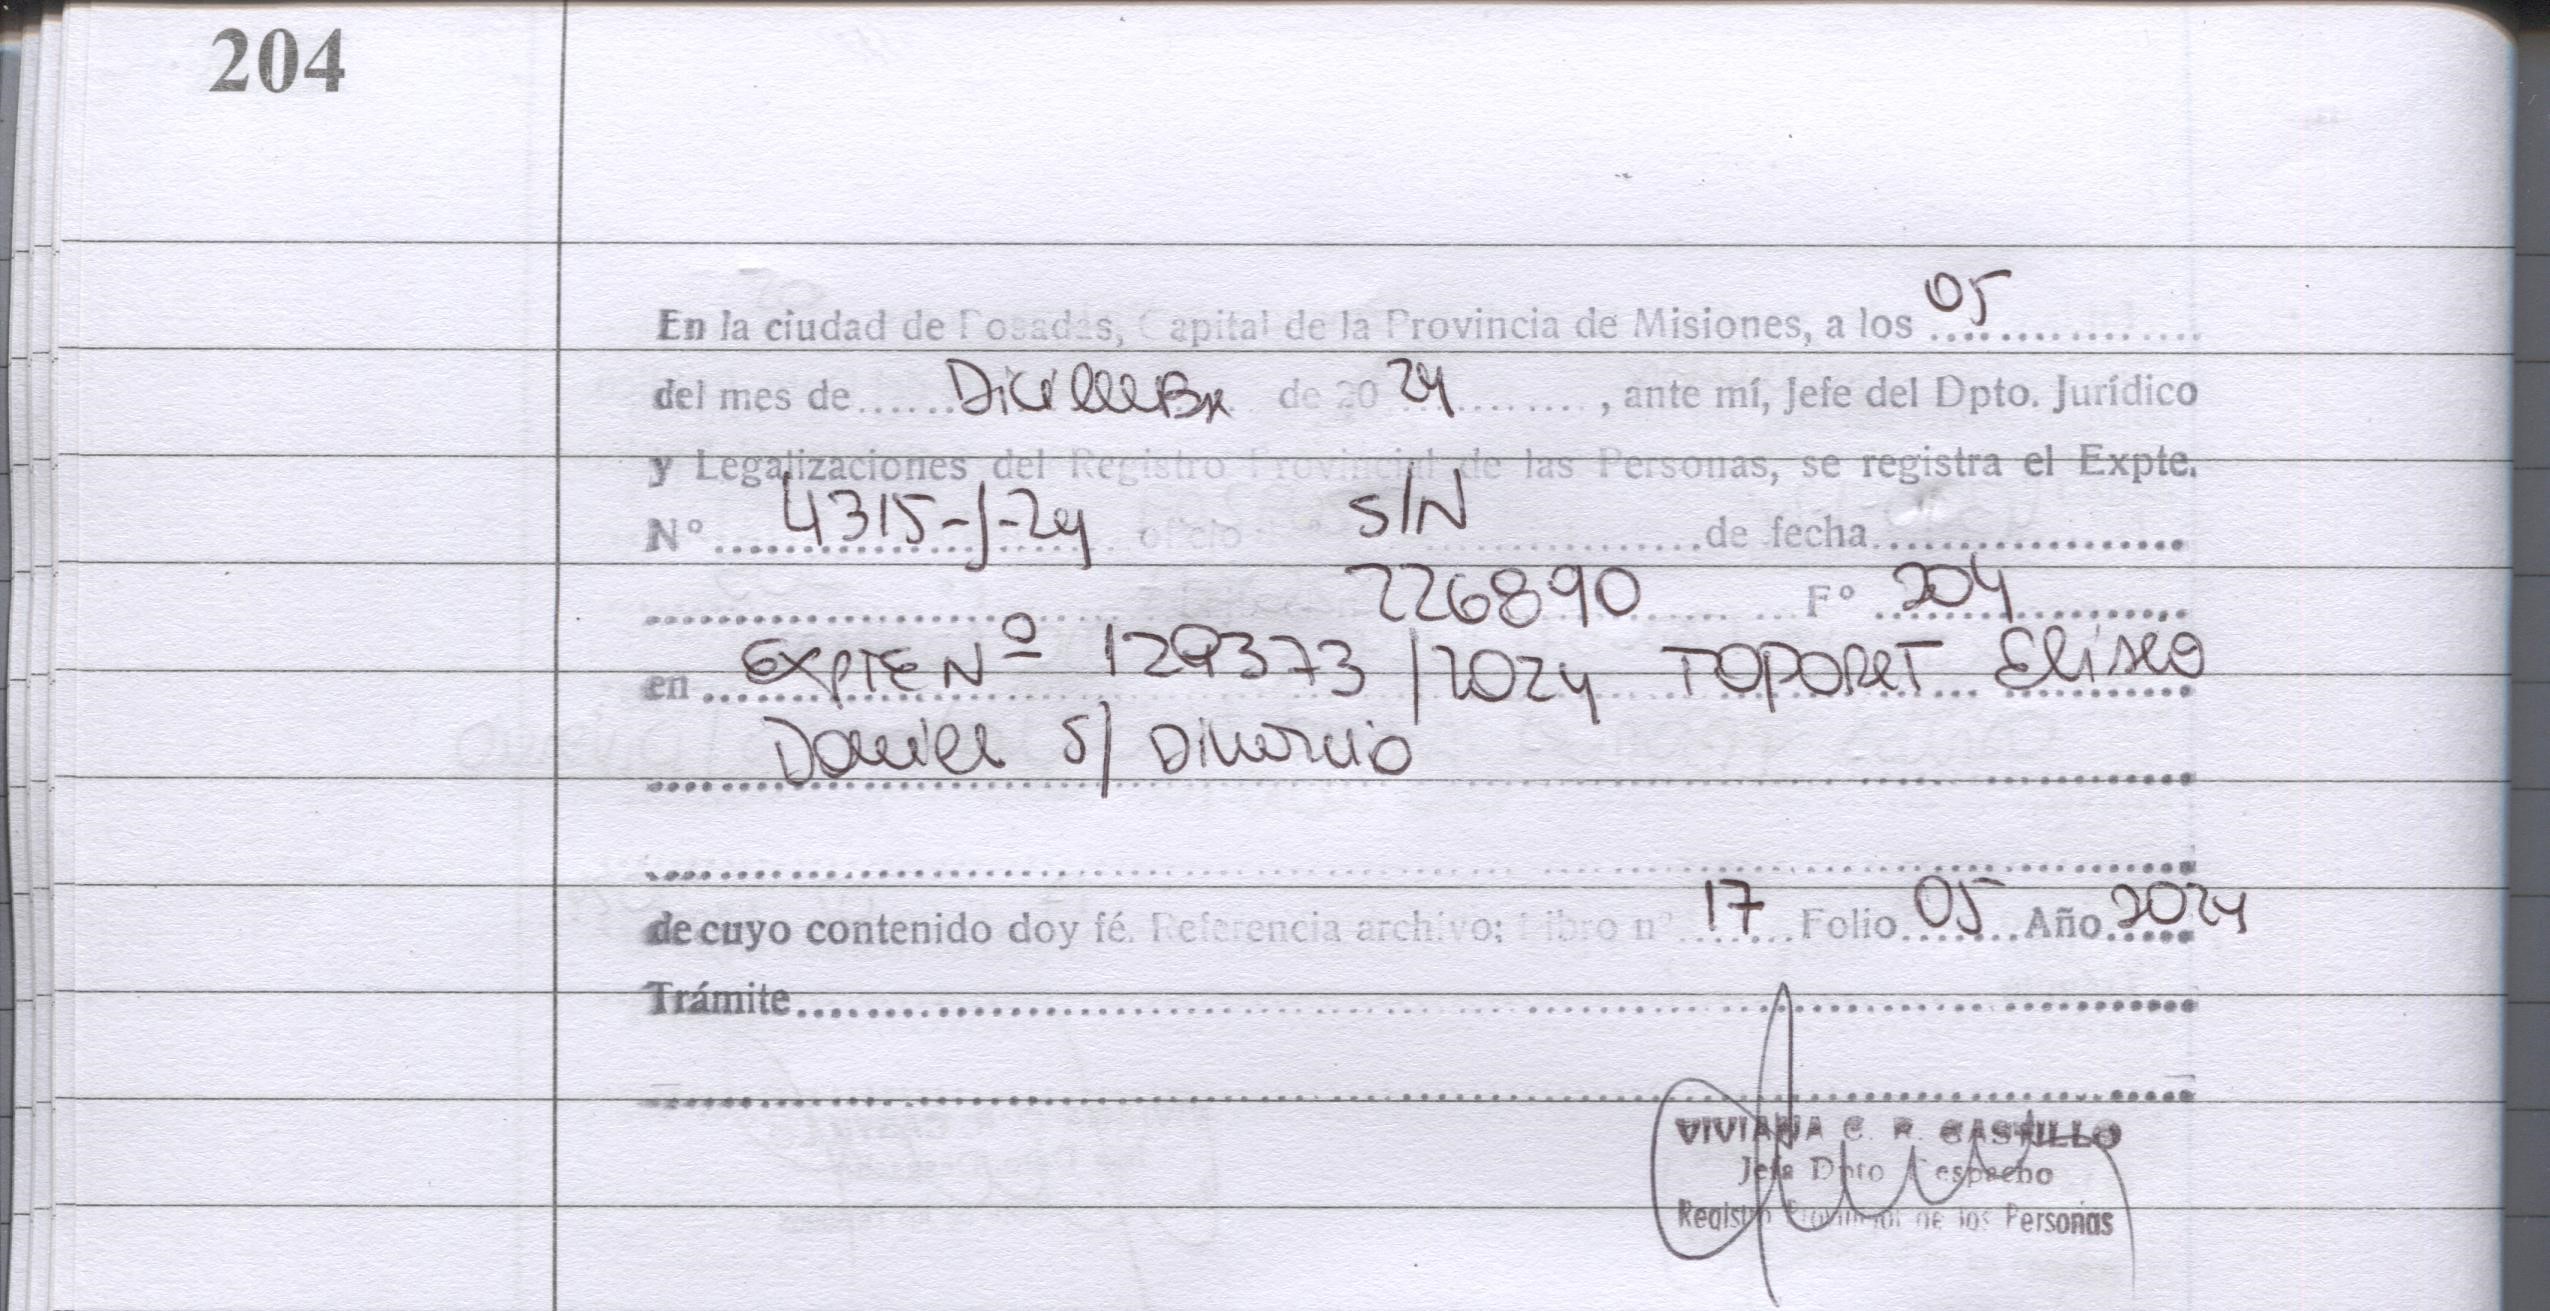 204
En la ciudad de Posadas, Capital de la Provincia de Misiones, a los 05
del mes de Diciembre de 2024, ante mí, Jefe del Dpto. Jurídico
y Legalizaciones del Registro Provincial de las Personas, se registra el Expte.
Nº 4315-J-24 oficio S/N de fecha
226890 Fº 204
en EXPTE Nº 129373/2024 TOPORET Eliseo
Daniel S/ Divorcio
de cuyo contenido doy fé. Referencia archivo: Libro nº 17 Folio 05 Año 2024
Trámite
VIVIANA C. R. CASTILLO
Jefa Dpto Despacho
Registro Provincial de las Personas